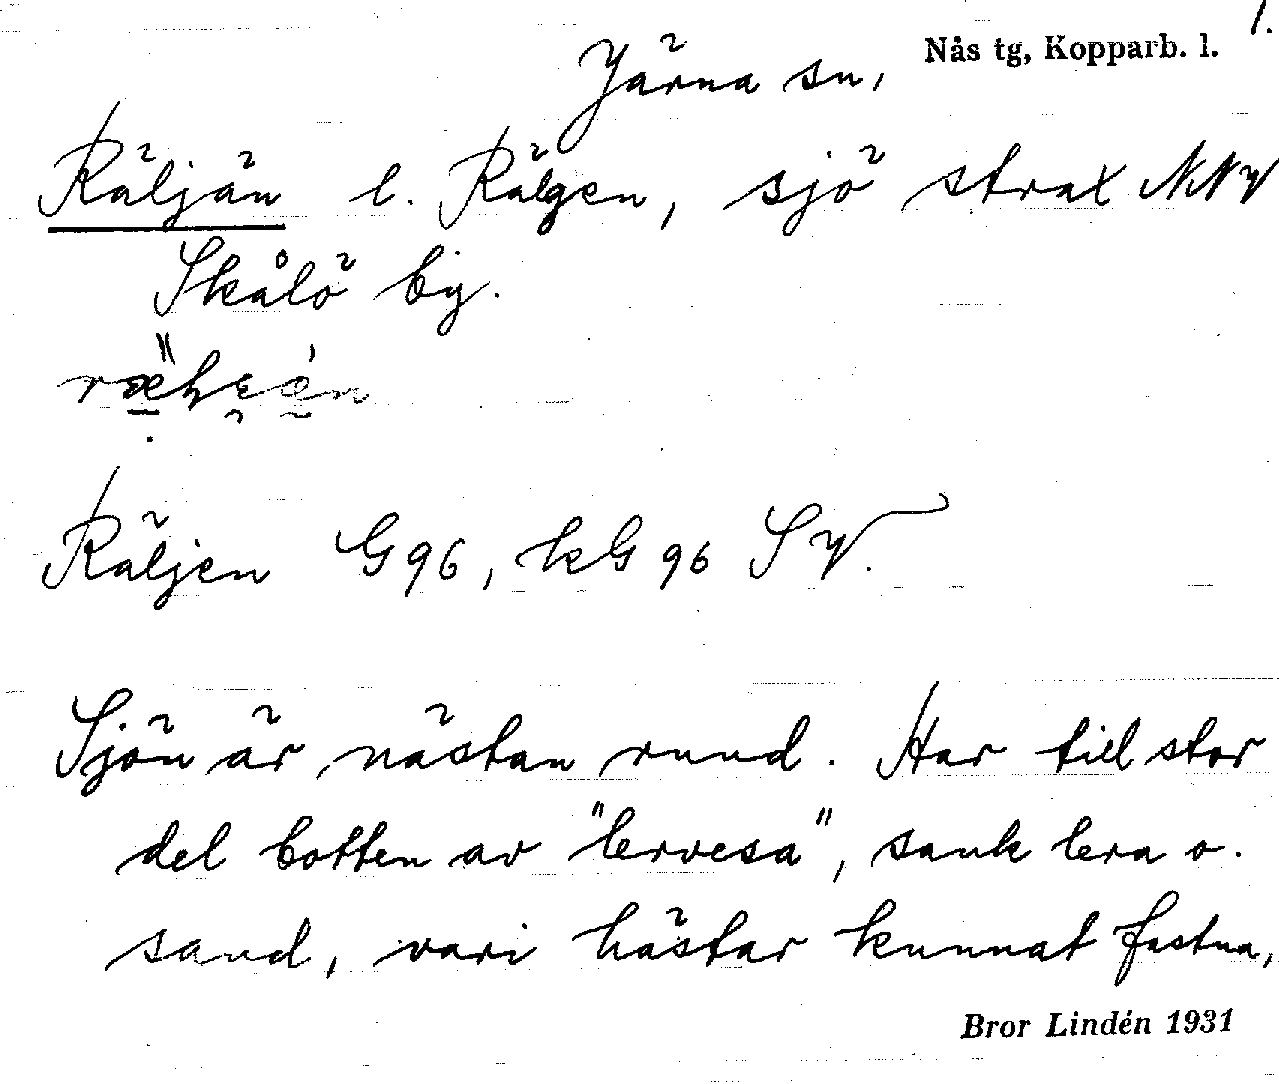 1.
Nås tg, Kopparb. l.
Järna sn,
Räljän l. Rälgen, sjö strax NNV
Skålö by.
Räljen G96, kG 96 SV.
Sjön är nästan rund. Har till stor
del botten av "lervesa", sank lera o.
sand, vari hästar kunnat fastna,
Bror Lindén 1931